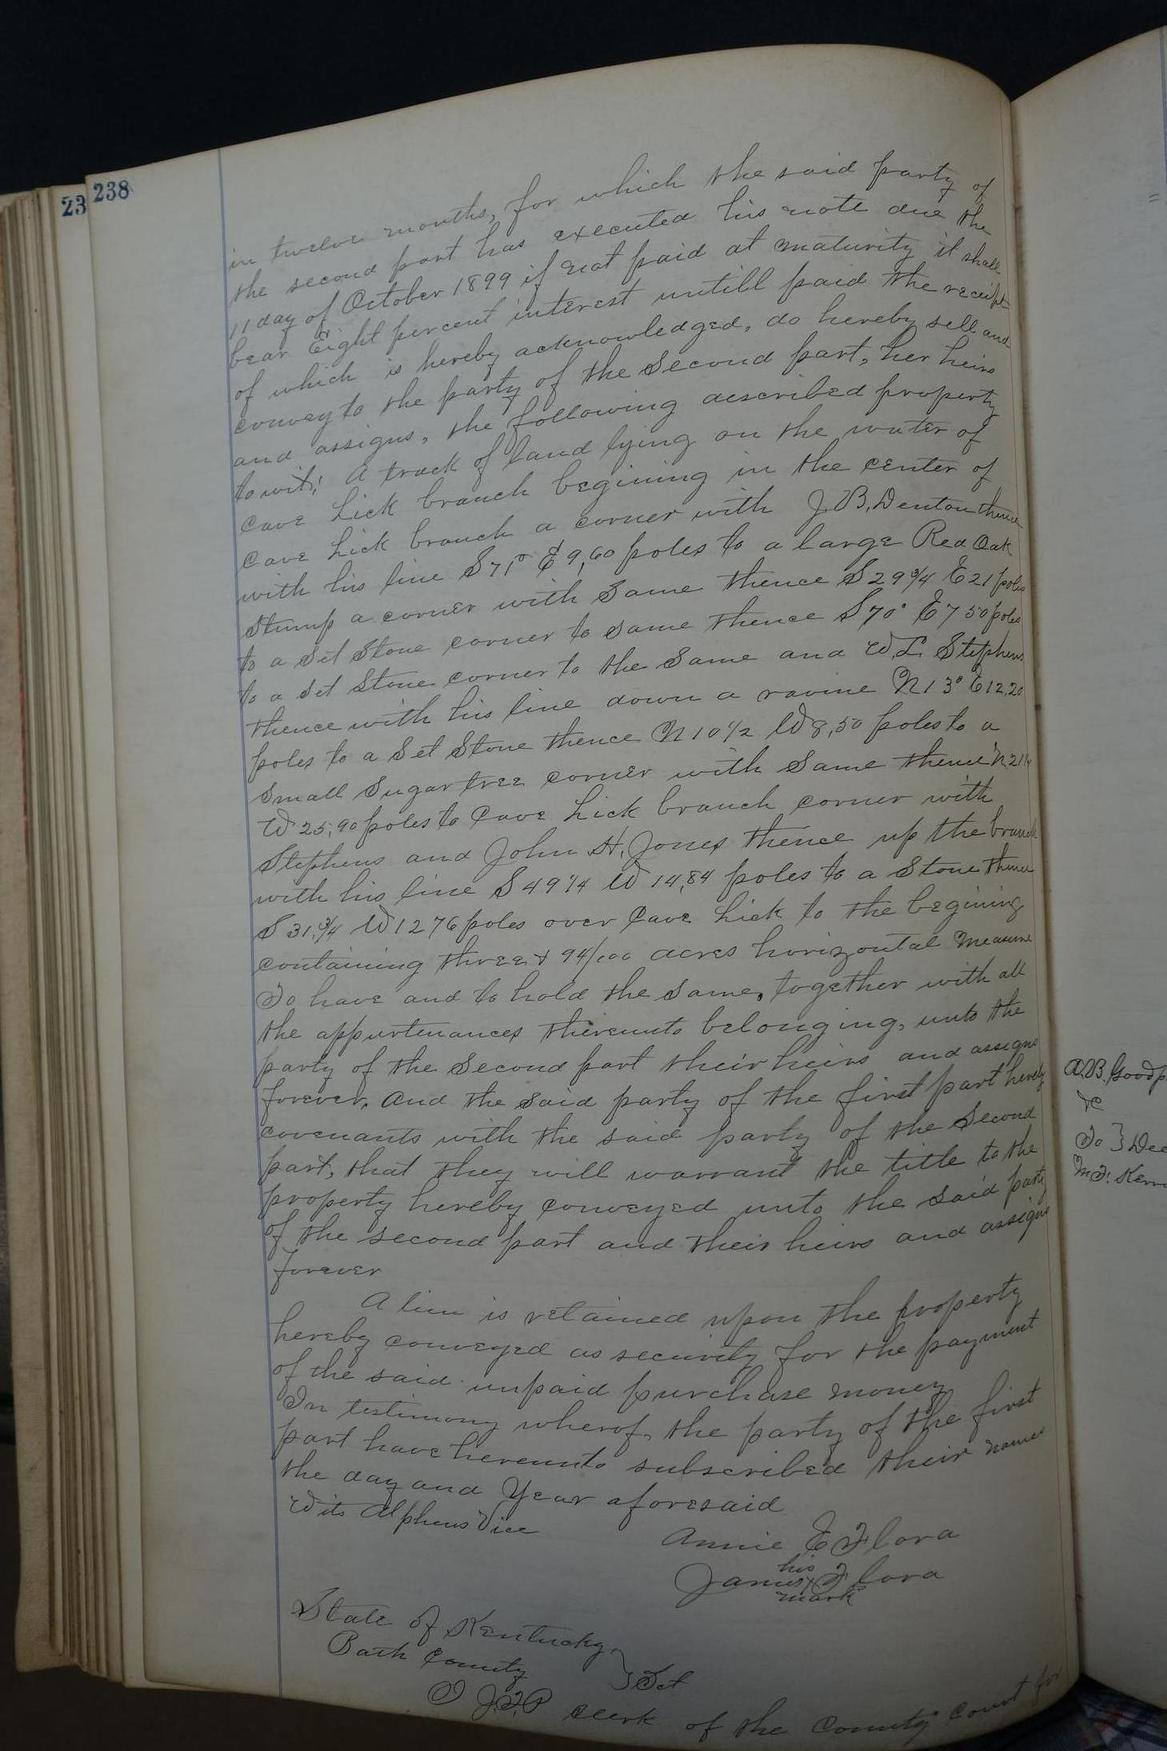 23
238
in twelve months, for which the said party of
the second part has executed his note due the
11 day of October 1899 if not paid at maturity it shall
bear Eight percent interest untill paid the receipt
of which is hereby acknowledged, do hereby sell and
convey to the party of the Second part, her heirs
and assigns, the following described property
to wit; A track of land lying on the water of
Cave Lick branch begining in the center of
Cave Lick branch a corner with J. B. Denton thence
with his line S 71° E 9,60 poles to a large Red Oak
Stump a corner with Same thence S 29 3/4 E 21 poles
to a Set Stone corner to same thence S 70° E 7 50 poles
to a Set Stone corner to the Same and W. L. Stephens
thence with his line down a ravine N 13° E 12.20
poles to a Set Stone thence N 10 1/2 W 8,50 poles to a
Small Sugartree corner with Same thence N 21 1/4
W 25,90 poles to Cave Lick branch corner with
Stephens and John H. Jones thence up the branch
with his line S 49 1/4 W 14,84 poles to a Stone thence
S 31 3/4 W 12 76 poles over Cave Lick to the begining
containing three & 94/100 acres horizontal measure
To have and to hold the same, together with all
the appurtenances thereunto belonging, unto the
party of the Second part their heirs and assigns
forever. And the said party of the first part hereby
covenants with the said party of the Second
part, that they will warrant the title to the
property hereby conveyed unto the said party
of the second part and their heirs and assigns
forever
A lien is retained upon the property
hereby conveyed as security for the payment
of the said unpaid purchase money
In testimony wherof, the party of the first
part have hereunto subscribed their names
the day and Year aforesaid
Wits Alpheus Vice
Annie E Flora
his
James X Flora
mark
State of Kentucky
Bath County } Sct
I J. F. P clerk of the County Court for
A. B. Goodp
&c
To } Dee
M. F. Kerr